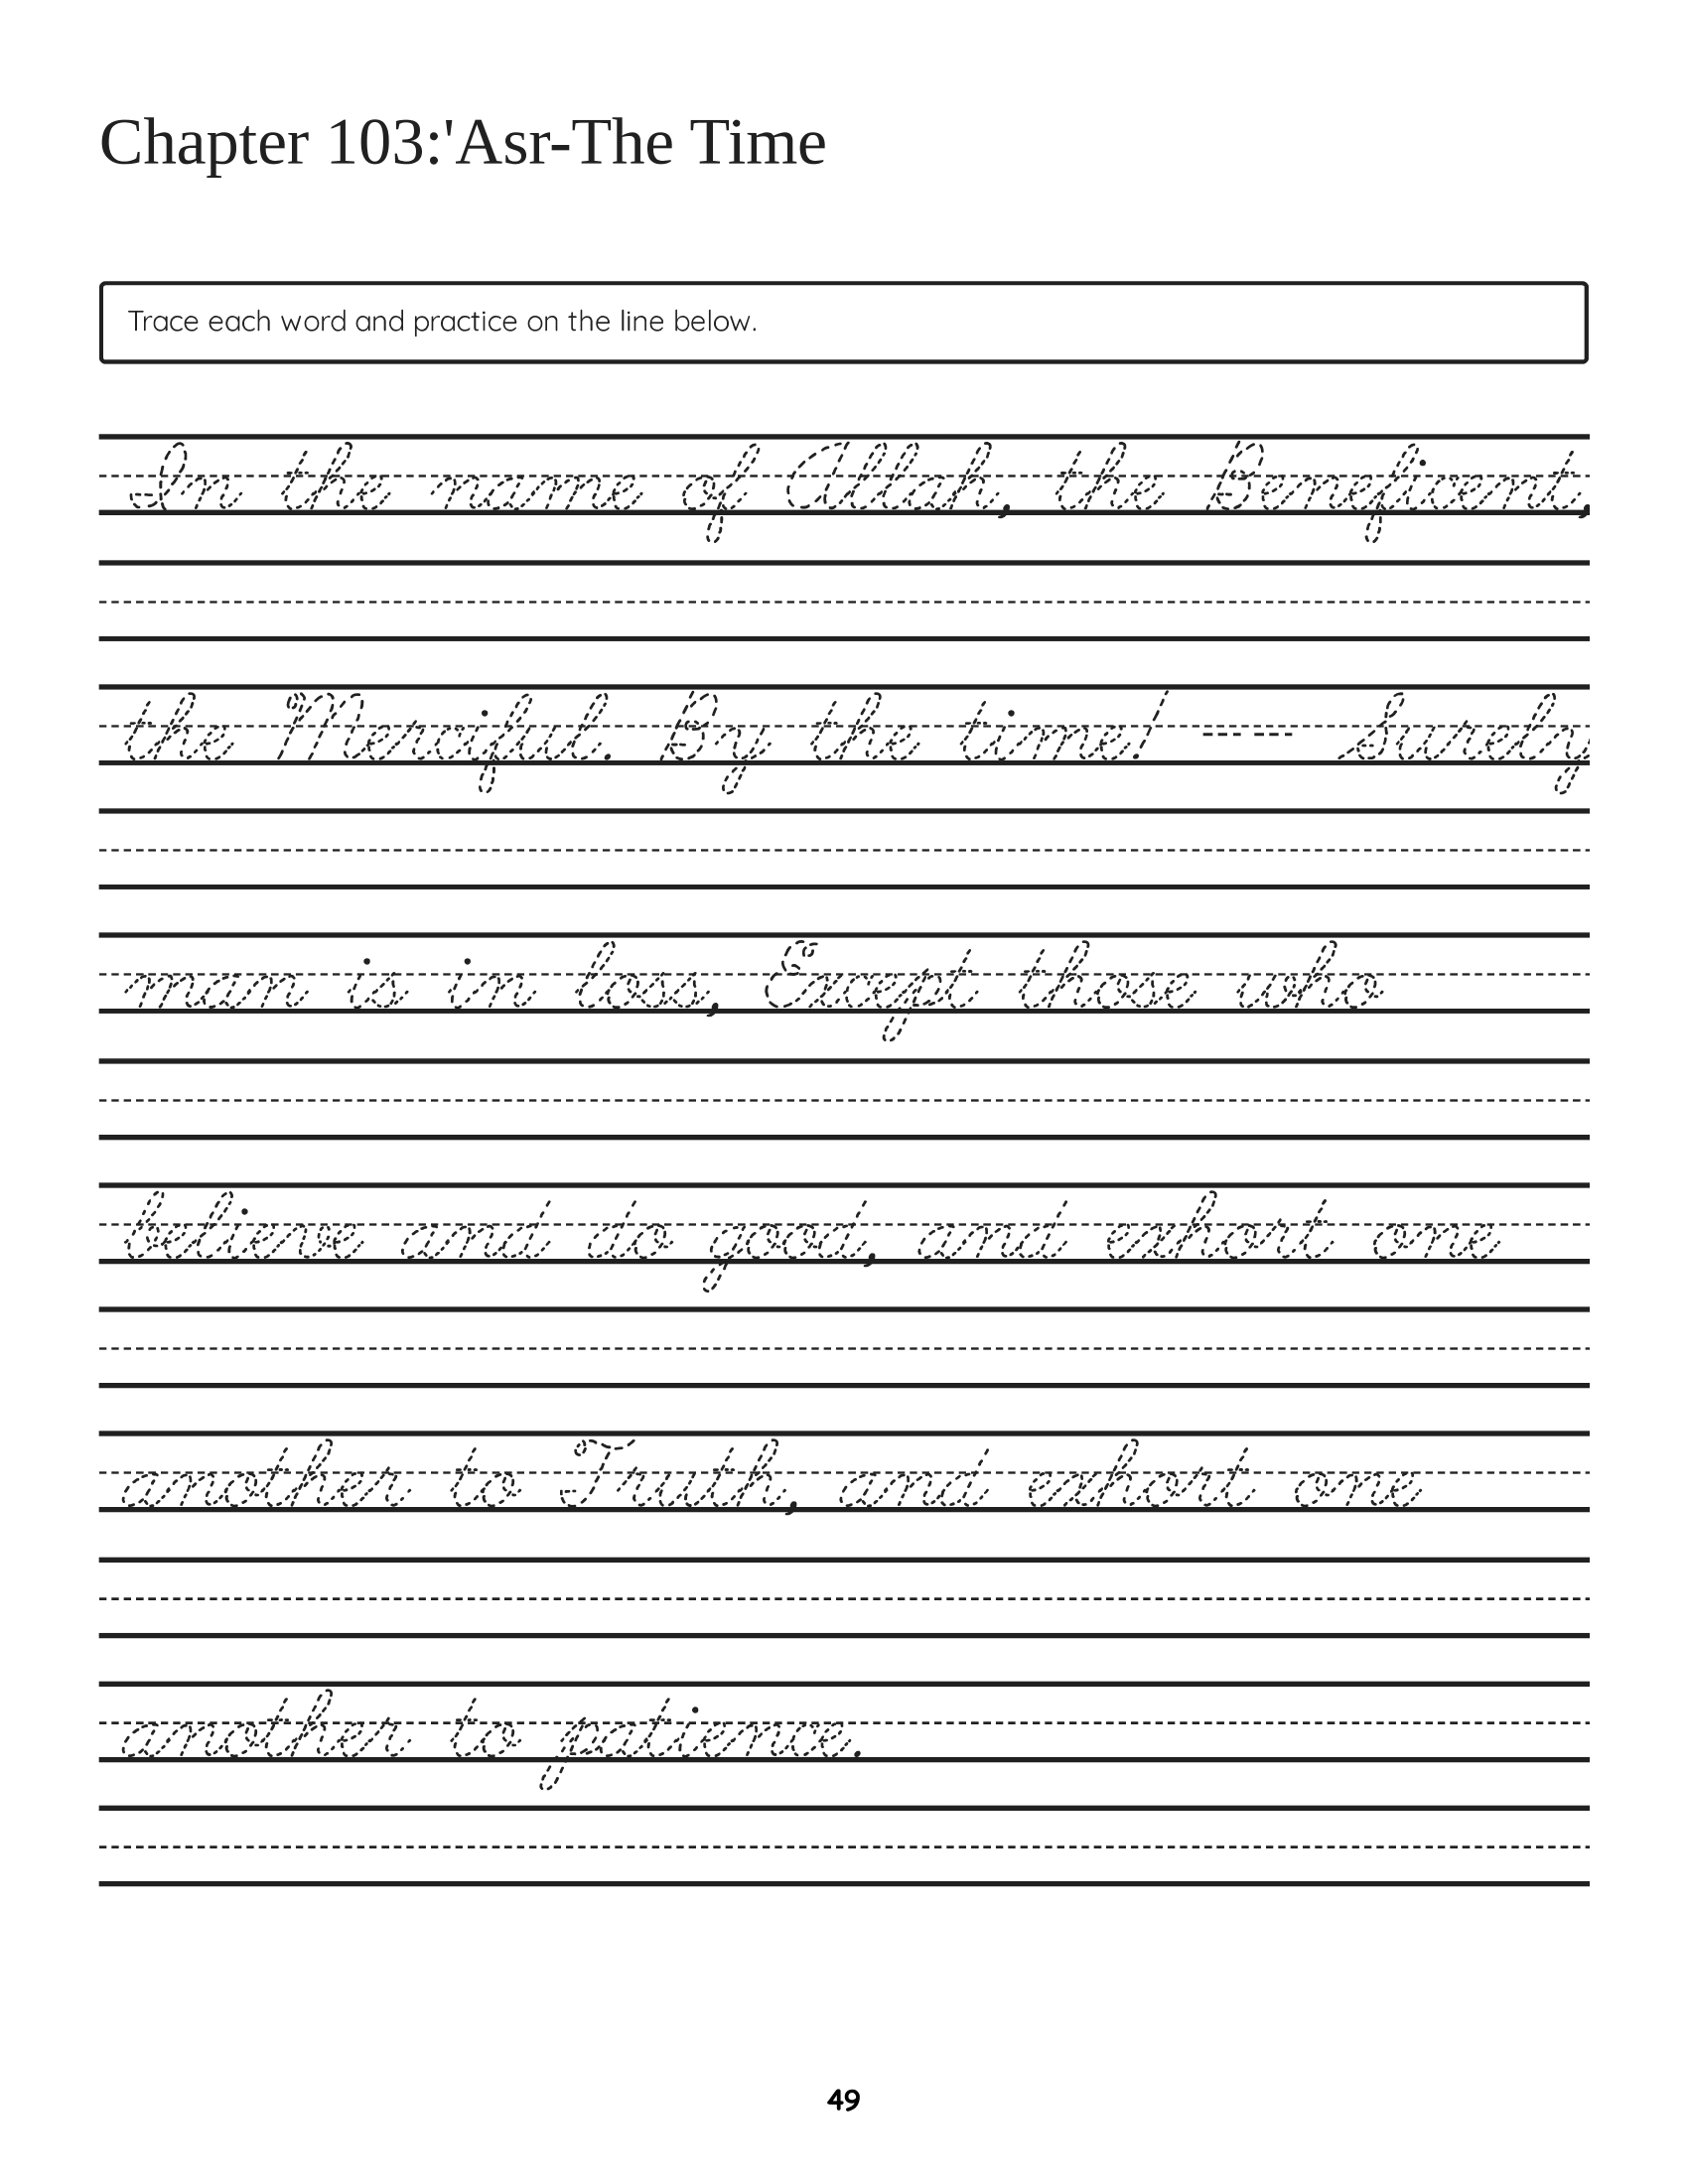 Chapter 103:'Asr-The Time
Trace each word and practice on the line below.
In the name of Allah, the Beneficent,
the Merciful. By the time! -- Surely
man is in loss, Except those who
believe and do good, and exhort one
another to Truth, and exhort one
another to patience.
49